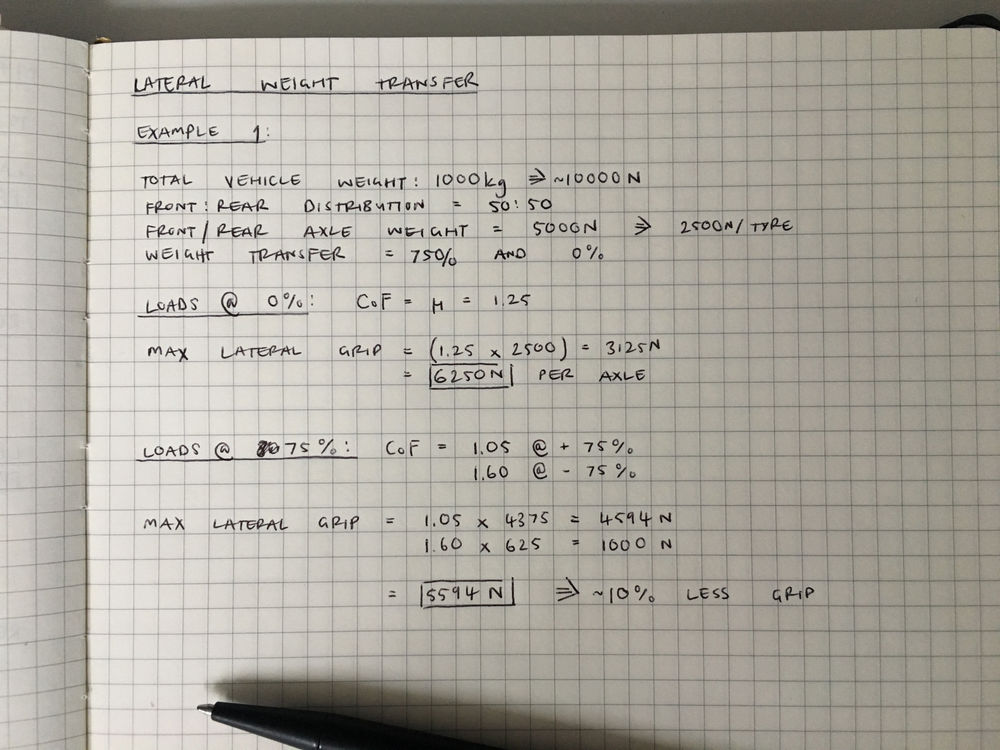 LATERAL WEIGHT TRANSFER
EXAMPLE 1:
TOTAL VEHICLE WEIGHT: 1000kg ⇒ ~10000N
FRONT:REAR DISTRIBUTION = 50:50
FRONT/REAR AXLE WEIGHT = 5000N ⇒ 2500N/TYRE
WEIGHT TRANSFER = 75% AND 0%
LOADS @ 0%: CoF = μ = 1.25
MAX LATERAL GRIP = (1.25 x 2500) = 3125N
= 6250N PER AXLE
LOADS @ 75%: CoF = 1.05 @ + 75%
1.60 @ - 75%
MAX LATERAL GRIP = 1.05 x 4375 = 4594 N
1.60 x 625 = 1000 N
= 5594 N ⇒ ~10% LESS GRIP